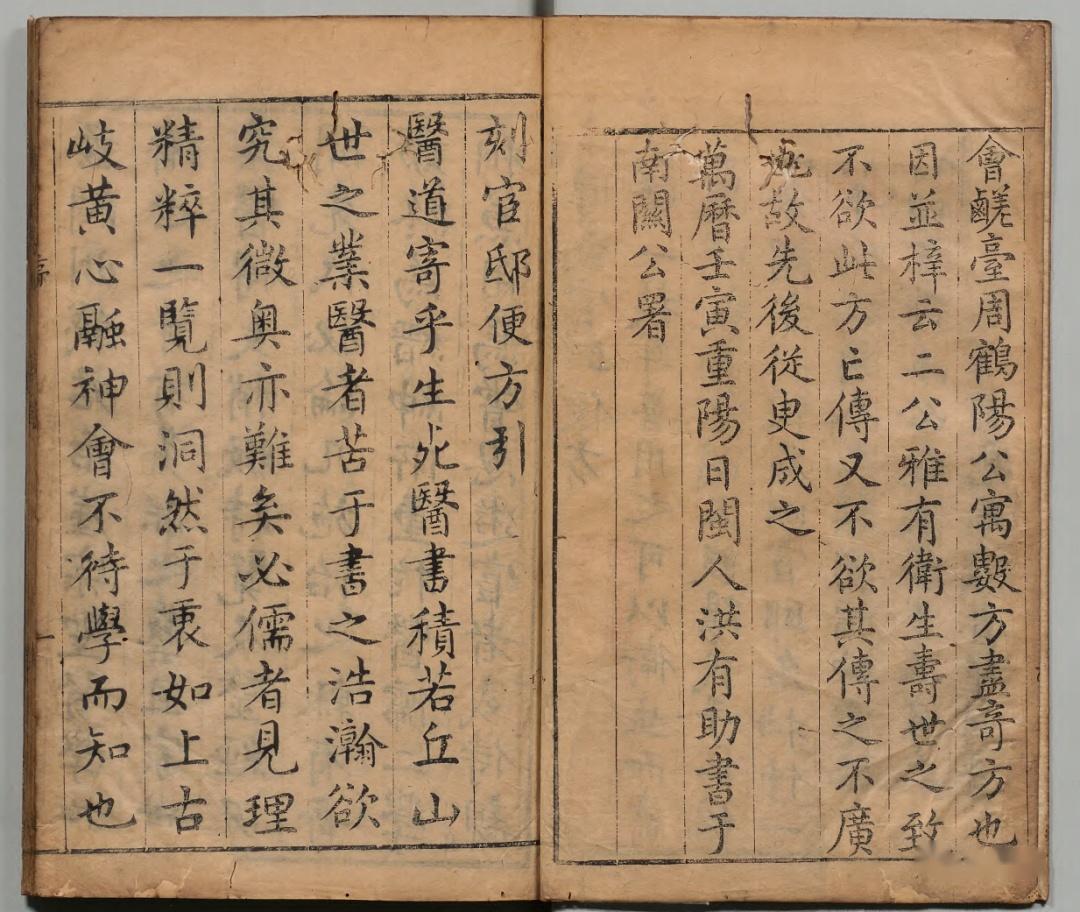 會鹺臺周鶴陽公寓數方盡竒方也
因並梓云二公雅有衛生壽世之致
不欲此方亡傳又不欲其傳之不廣
故先後從㬰成之
萬曆壬寅重陽日閩人洪有助書于
南關公署
刻官邸便方引
醫道寄乎生死醫書積若丘山
世之業醫者苦于書之浩瀚欲
究其微奥亦難矣必儒者見理
精粹一覽則洞然于衷如上古
岐黄心融神會不待學而知也
序
一